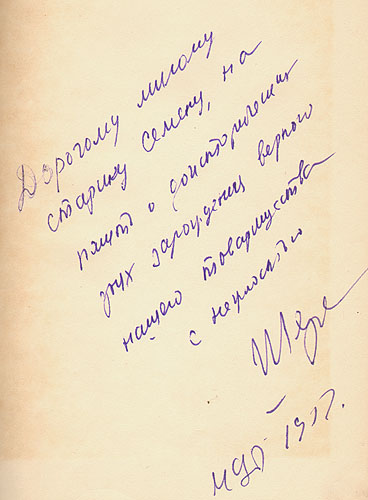 Дорогому милому
старику Семену, на
память о доисторических
днях зарождения верного
нашего товарищества
с нежностью